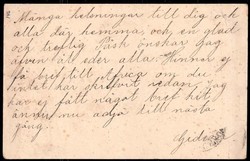 Många helsningar till dig och
alla där hemma och en glad
och treflig Påsk önskar jag
även åt eder alla. Hinner ej
få bref till om du
intet har skrivit redan, jag
har ej fått något bref hit
ännu mu adjö till nästa
gång.